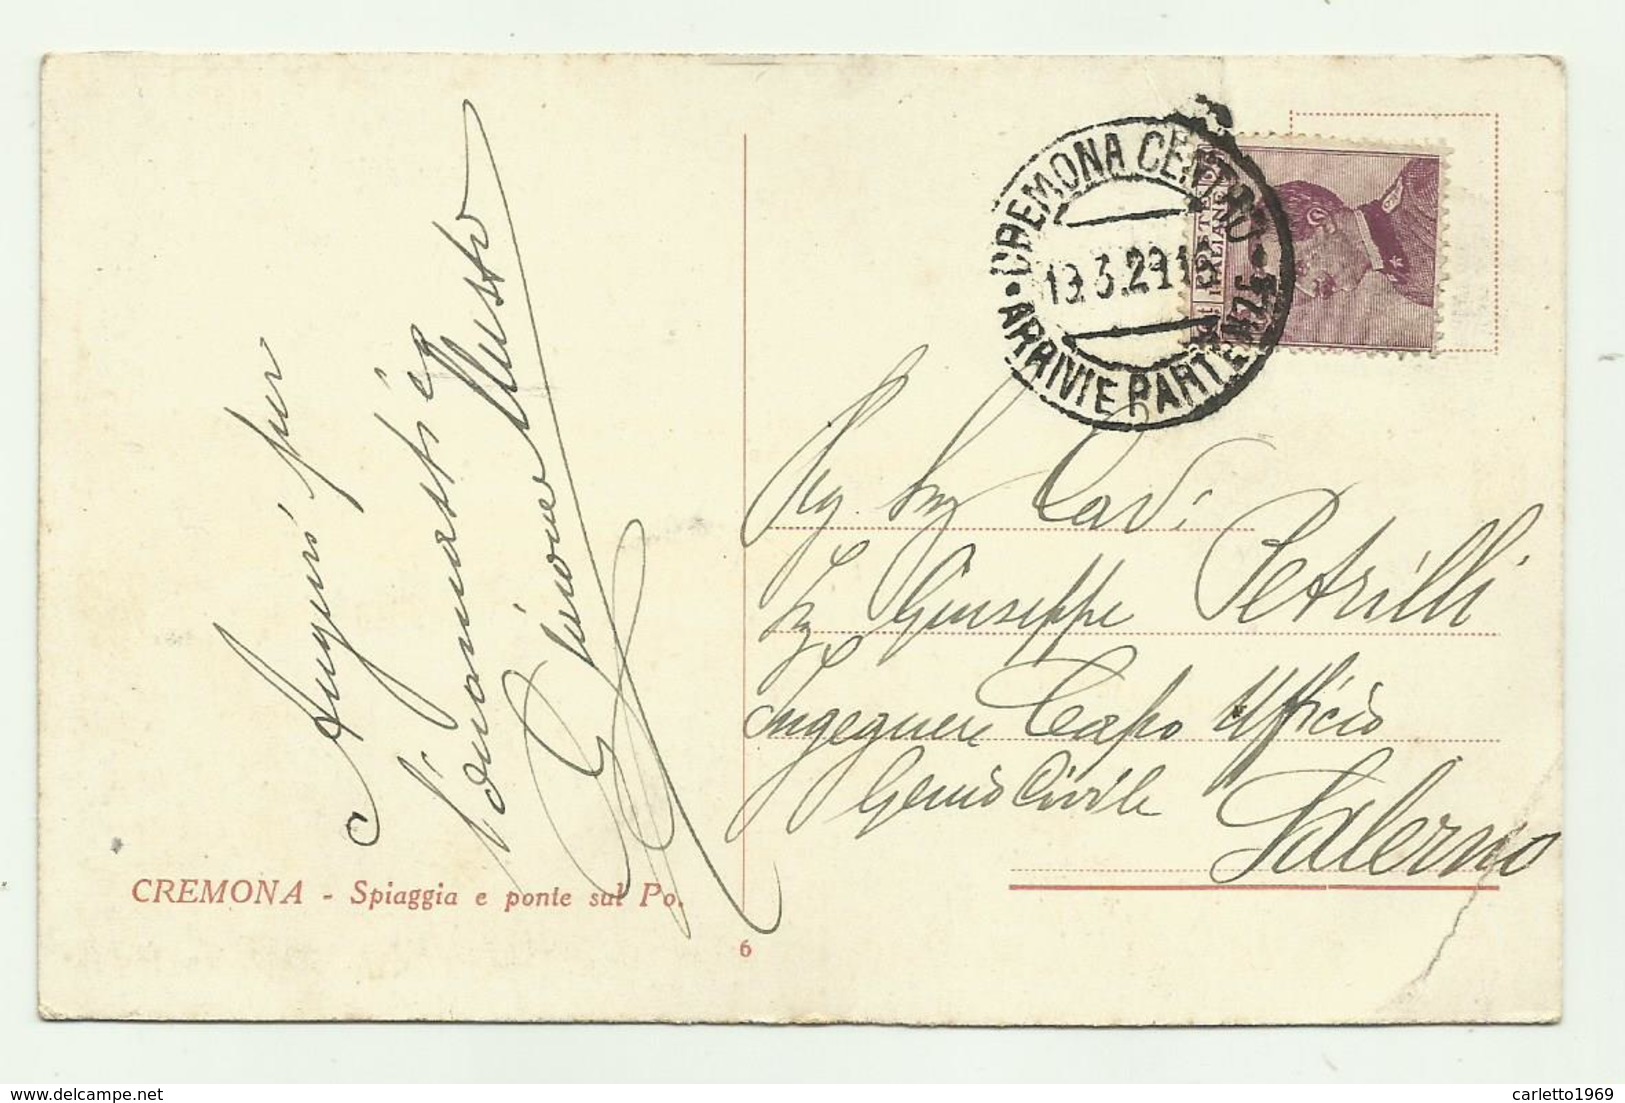 Auguri per
l'onomastico
Simone Musto
CREMONA - Spiaggia e ponte sul Po.
6
CREMONA CENTRO
19.3.29 18
ARRIVI E PARTENZE
POSTE
ITALIANE
Ing. Cav.
Giuseppe Petrilli
Ingegnere Capo Ufficio
Genio Civile
Salerno
delcampe.net
carletto1969